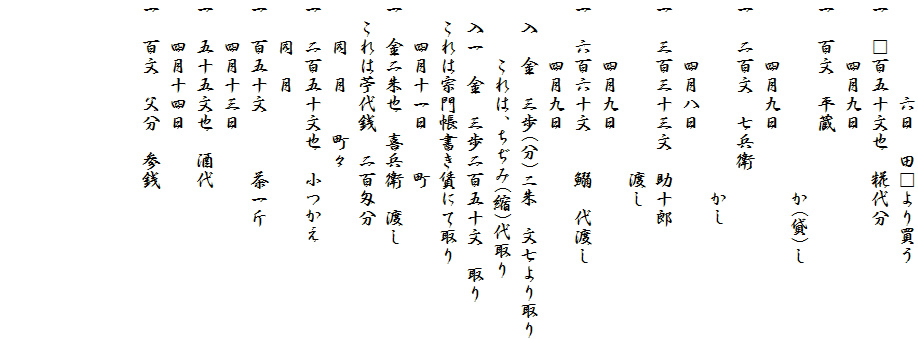 六日　田□より買う
一　□百五十文也　糀代分
四月九日
一　百文　平蔵　か(貸)し
四月九日
一　二百文　七兵衛　かし
四月八日
一　三百三十三文　助十郎　渡し
四月九日
一　六百六十文　鰯　代渡し
四月九日
入　金　三歩(分)二朱　文七より取り
これは、ちぢみ(縮)代取り
入一　金　三歩二百五十文　取り
これは宗門帳書き賃にて取り
四月十一日　町
一　金二朱也　喜兵衛　渡し
これは苧代銭　二百匁分
同　月　町々
一　二百五十文也　小つかえ
同　月
一　百五十文　茶一斤
四月十三日
一　五十五文也　酒代
四月十四日
一　百文　父分　参銭